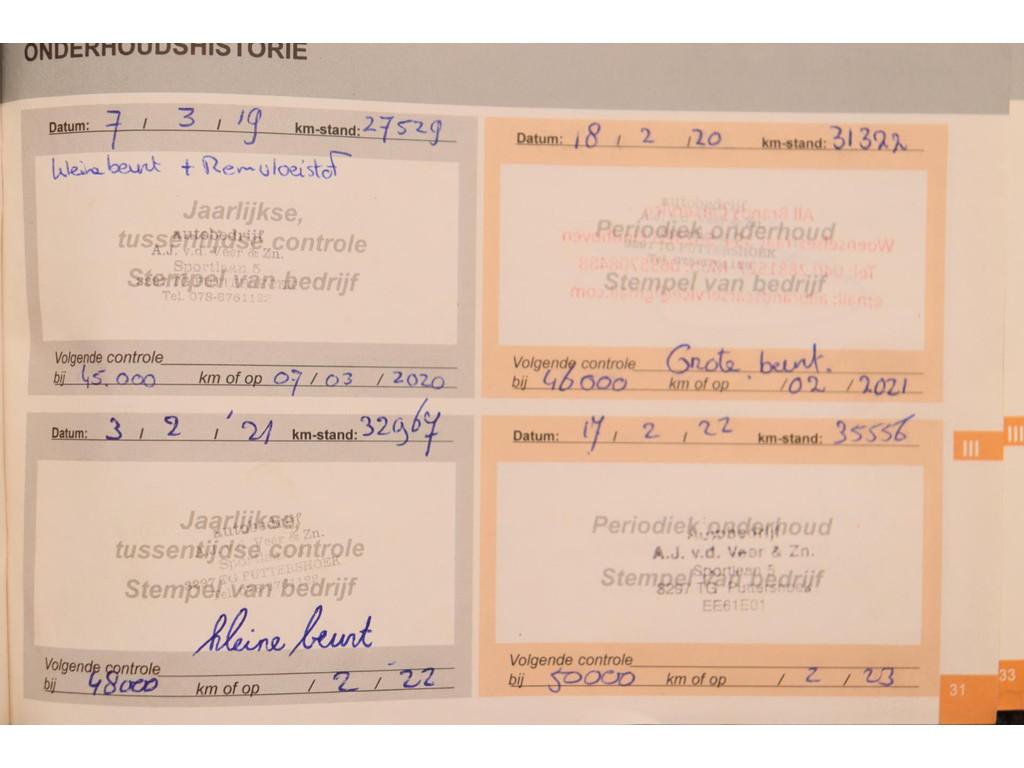 ONDERHOUDSHISTORIE
Datum: 7 / 3 / 19 km-stand: 27529
kleine beurt + Remvloeistof
Jaarlijkse,
tussentijdse controle
Stempel van bedrijf
Autobedrijf
A.J. v.d. Veer & Zn.
Sportlaan 5
Tel. 078-6761122
Volgende controle
bij 45.000 km of op 07 / 03 / 2020
Datum: 18 / 2 / 20 km-stand: 31322
Periodiek onderhoud
Stempel van bedrijf
Autobedrijf
3297 TG PUTTERSHOEK
Volgende controle Grote beurt.
bij 46000 km of op / 02 / 2021
Datum: 3 / 2 / '21 km-stand: 32967
Jaarlijkse,
tussentijdse controle
Stempel van bedrijf
Autobedrijf
A.J. v.d. Veer & Zn.
Sportlaan 5
3297 TG PUTTERSHOEK
kleine beurt
Volgende controle
bij 48000 km of op / 2 / 22
Datum: 17 / 2 / 22 km-stand: 35556
Periodiek onderhoud
Stempel van bedrijf
Autobedrijf
A.J. v.d. Veer & Zn.
Sportlaan 5
3297 TG Puttershoek
EE61E01
Volgende controle
bij 50000 km of op / 2 / 23
III
III
31
33